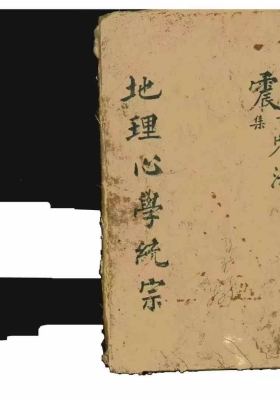 震
集
地理心學統宗